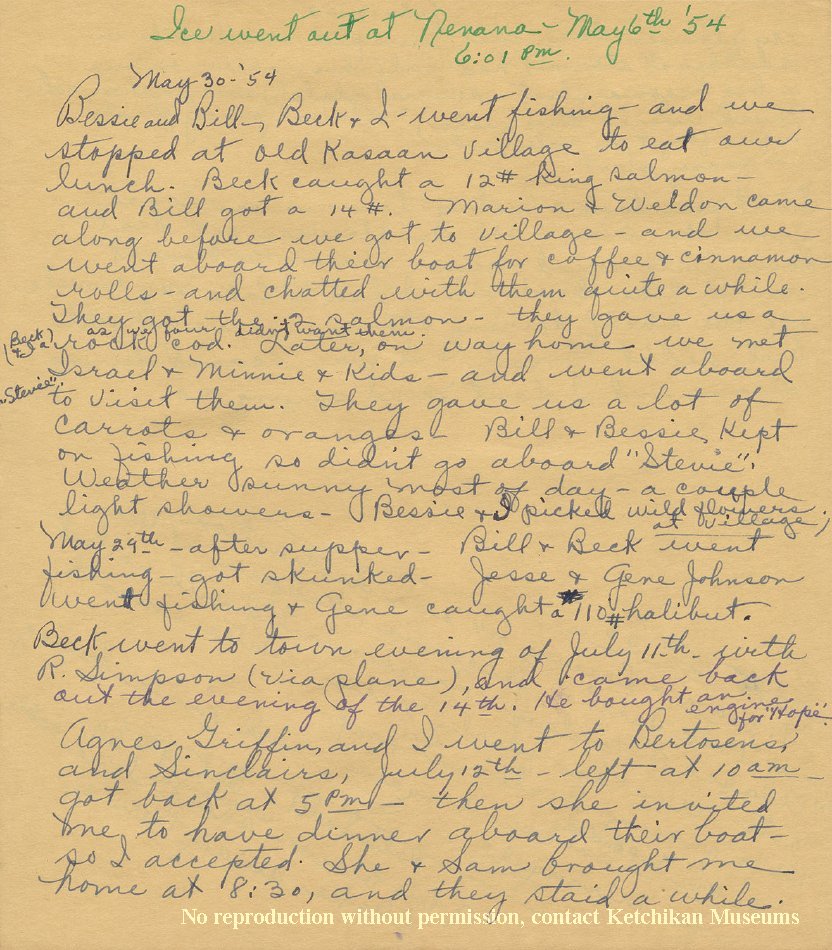 Ice went out at Nenana - May 6th '54
6:01 pm.
May 30 - '54
Bessie and Bill -, Beck & I - went fishing - and we
stopped at old Kasaan Village to eat our
lunch. Beck caught a 12# King salmon -
and Bill got a 14#. Marion & Weldon came
along before we got to village - and we
went aboard their boat for coffee & cinnamon
rolls - and chatted with them quite a while.
They got three salmon - they gave us a
as we four didn't want them.
rock cod. Later, on way home we met
(Beck & a
Israel & Minnie & Kids - and went aboard
"Stevie".
to visit them. They gave us a lot of
carrots & oranges - Bill & Bessie Kept
on fishing so didn't go aboard "Stevie".
Weather sunny most of day - a couple
light showers - Bessie & I picked wild flowers
at village;
May 29th - after supper - Bill & Beck went
fishing - got skunked - Jesse & Gene Johnson
went fishing & Gene caught a 110# halibut.
Beck went to town evening of July 11th - with
R. Simpson (via plane), and came back
out the evening of the 14th. He bought an
engine
for "Hope".
Agnes Griffin, and I went to Bertosens,
and Sinclairs, July 12th - left at 10 am -
got back at 5 pm - then she invited
me to have dinner aboard their boat -
so I accepted. She & Sam brought me
home at 8:30, and they staid a while.
No reproduction without permission, contact Ketchikan Museums